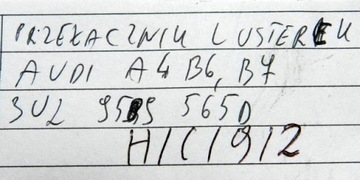 PRZEŁĄCZNIK LUSTEREK
AUDI A4 B6, B7
3U2 959 565D
H/C/9/2